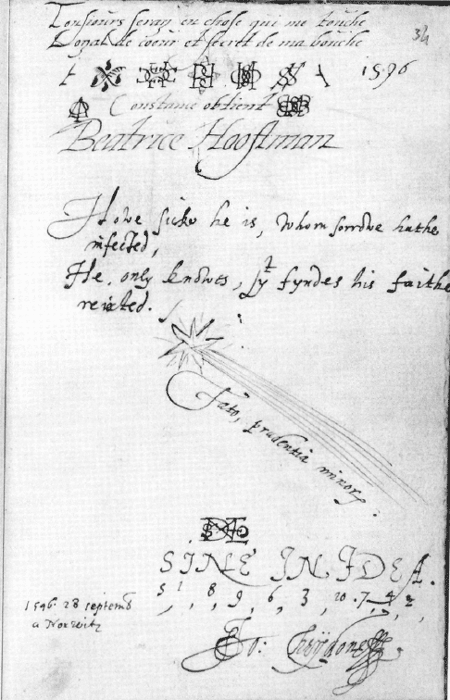 34
Tousjours seray en chose qui me touche
Loyal de coeur et secret de ma bouche
1596
Constance obtient
Beatrice Hooftman
Howe sicke he is, whom sorrowe hathe
infected,
He, only knowes, yt fyndes his faithe
reiected.
Fato, prudentia minor.
SINE INIDEA.
5 1 8 9 6 3 10 7 4 2
1596 28 septemb
a Norwitz
Jo: